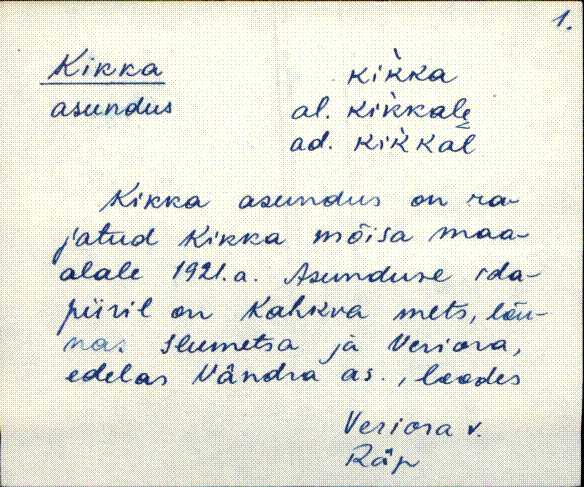 1.
Kikka
asundus
kik̀ka
al. kik̀kale
ad. kik̀kal
Kikka asundus on ra-
jatud Kikka mõisa maa-
alale 1921.a. Asunduse ida-
piiril on Kahkva mets, lõu-
nas Ilumetsa ja Veriora,
edelas Vändra as., loodes
Veriora v.
Räp